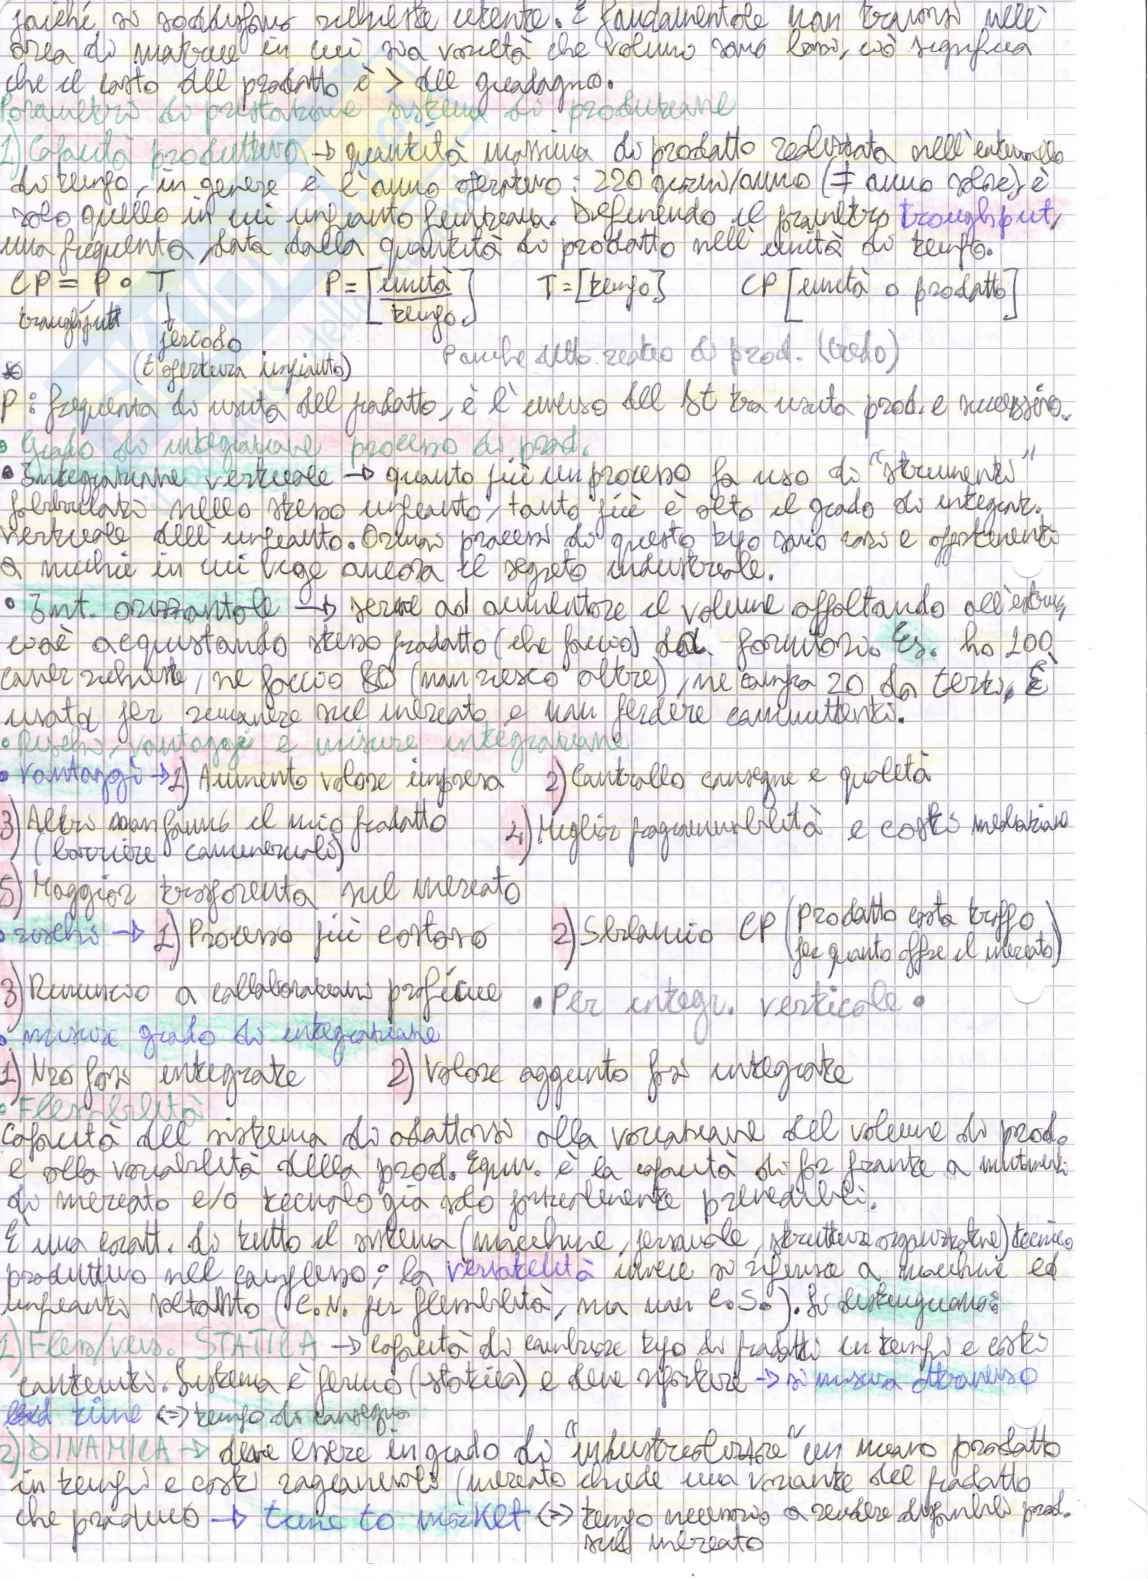 poiché si soddisfano richieste utente. È fondamentale non trovarsi nell'
area di matrice in cui sia varietà che volume sono bassi, ciò significa
che il costo del prodotto è > del guadagno.
Parametri di prestazione sistema di produzione
1) Capacità produttiva → quantità massima di prodotto realizzata nell'intervallo
di tempo, in genere è l'anno operativo: 220 giorni/anno (≠ anno solare), è
solo quello in cui impianto funziona. Definendo il parametro troughput,
una frequenza, data dalla quantità di prodotto nell'unità di tempo.
CP = P • T P = [unità/tempo] T = [tempo] CP [unità o prodotto]
troughput periodo
(t apertura impianto) P anche detto rateo di prod. (credo)
P: frequenza di uscita del prodotto, è l'inverso del Δt tra uscita prod. e successivo.
• Grado di integrazione processo di prod.
• Integrazione verticale → quanto più un processo fa uso di "strumenti"
fabbricati nello stesso impianto, tanto più è alto il grado di integraz.
verticale dell'impianto. Ormai processi di questo tipo sono rari e appartenenti
a nicchie in cui vige ancora il segreto industriale.
• Int. orizzontale → serve ad aumentare il volume appaltando all'esterno,
cioè acquistando stesso prodotto (che faccio) da fornitori. Es. ho 100
come richieste, ne faccio 80 (non riesco oltre), ne compro 20 da terzi. È
usata per rimanere sul mercato e non perdere committenti.
• Rischi, vantaggi e misure integrazione
• Vantaggi → 1) Aumento valore impresa 2) Controllo consegne e qualità
3) Altri non fanno il mio prodotto 4) Miglior programmabilità e costi mediazione
(barriere commerciali)
5) Maggior trasparenza sul mercato
• rischi → 1) Processo più costoso 2) Sbilancio CP (prodotto costa troppo
per quanto offre il mercato)
3) Rinuncio a collaborazioni proficue • Per integr. verticale •
• misura grado di integrazione
1) Nro fasi integrate 2) Valore aggiunto fasi integrate
• Flessibilità
Capacità del sistema di adattarsi alla variazione del volume di prod.
e alla variabilità della prod. Equiv. è la capacità di far fronte a mutamenti
di mercato e/o tecnologia solo parzialmente prevedibili.
È una caratt. di tutto il sistema (macchine, personale, struttura organizzativa) tecnico
produttivo nel complesso; la versatilità invece si riferisce a macchine ed
impianti soltanto (C.N. per flessibilità, ma non C.S.). Si distinguono:
1) Fless/vers. STATICA → capacità di cambiare tipo di prodotti in tempi e costi
contenuti. Sistema è fermo (statica) e deve ripartire → si misura attraverso
lead time <=> tempo di consegna
2) DINAMICA → deve essere in grado di "industrializzare" un nuovo prodotto
in tempi e costi ragionevoli (mercato chiede una variante del prodotto
che produco → time to market <=> tempo necessario a rendere disponibile prod.
sul mercato